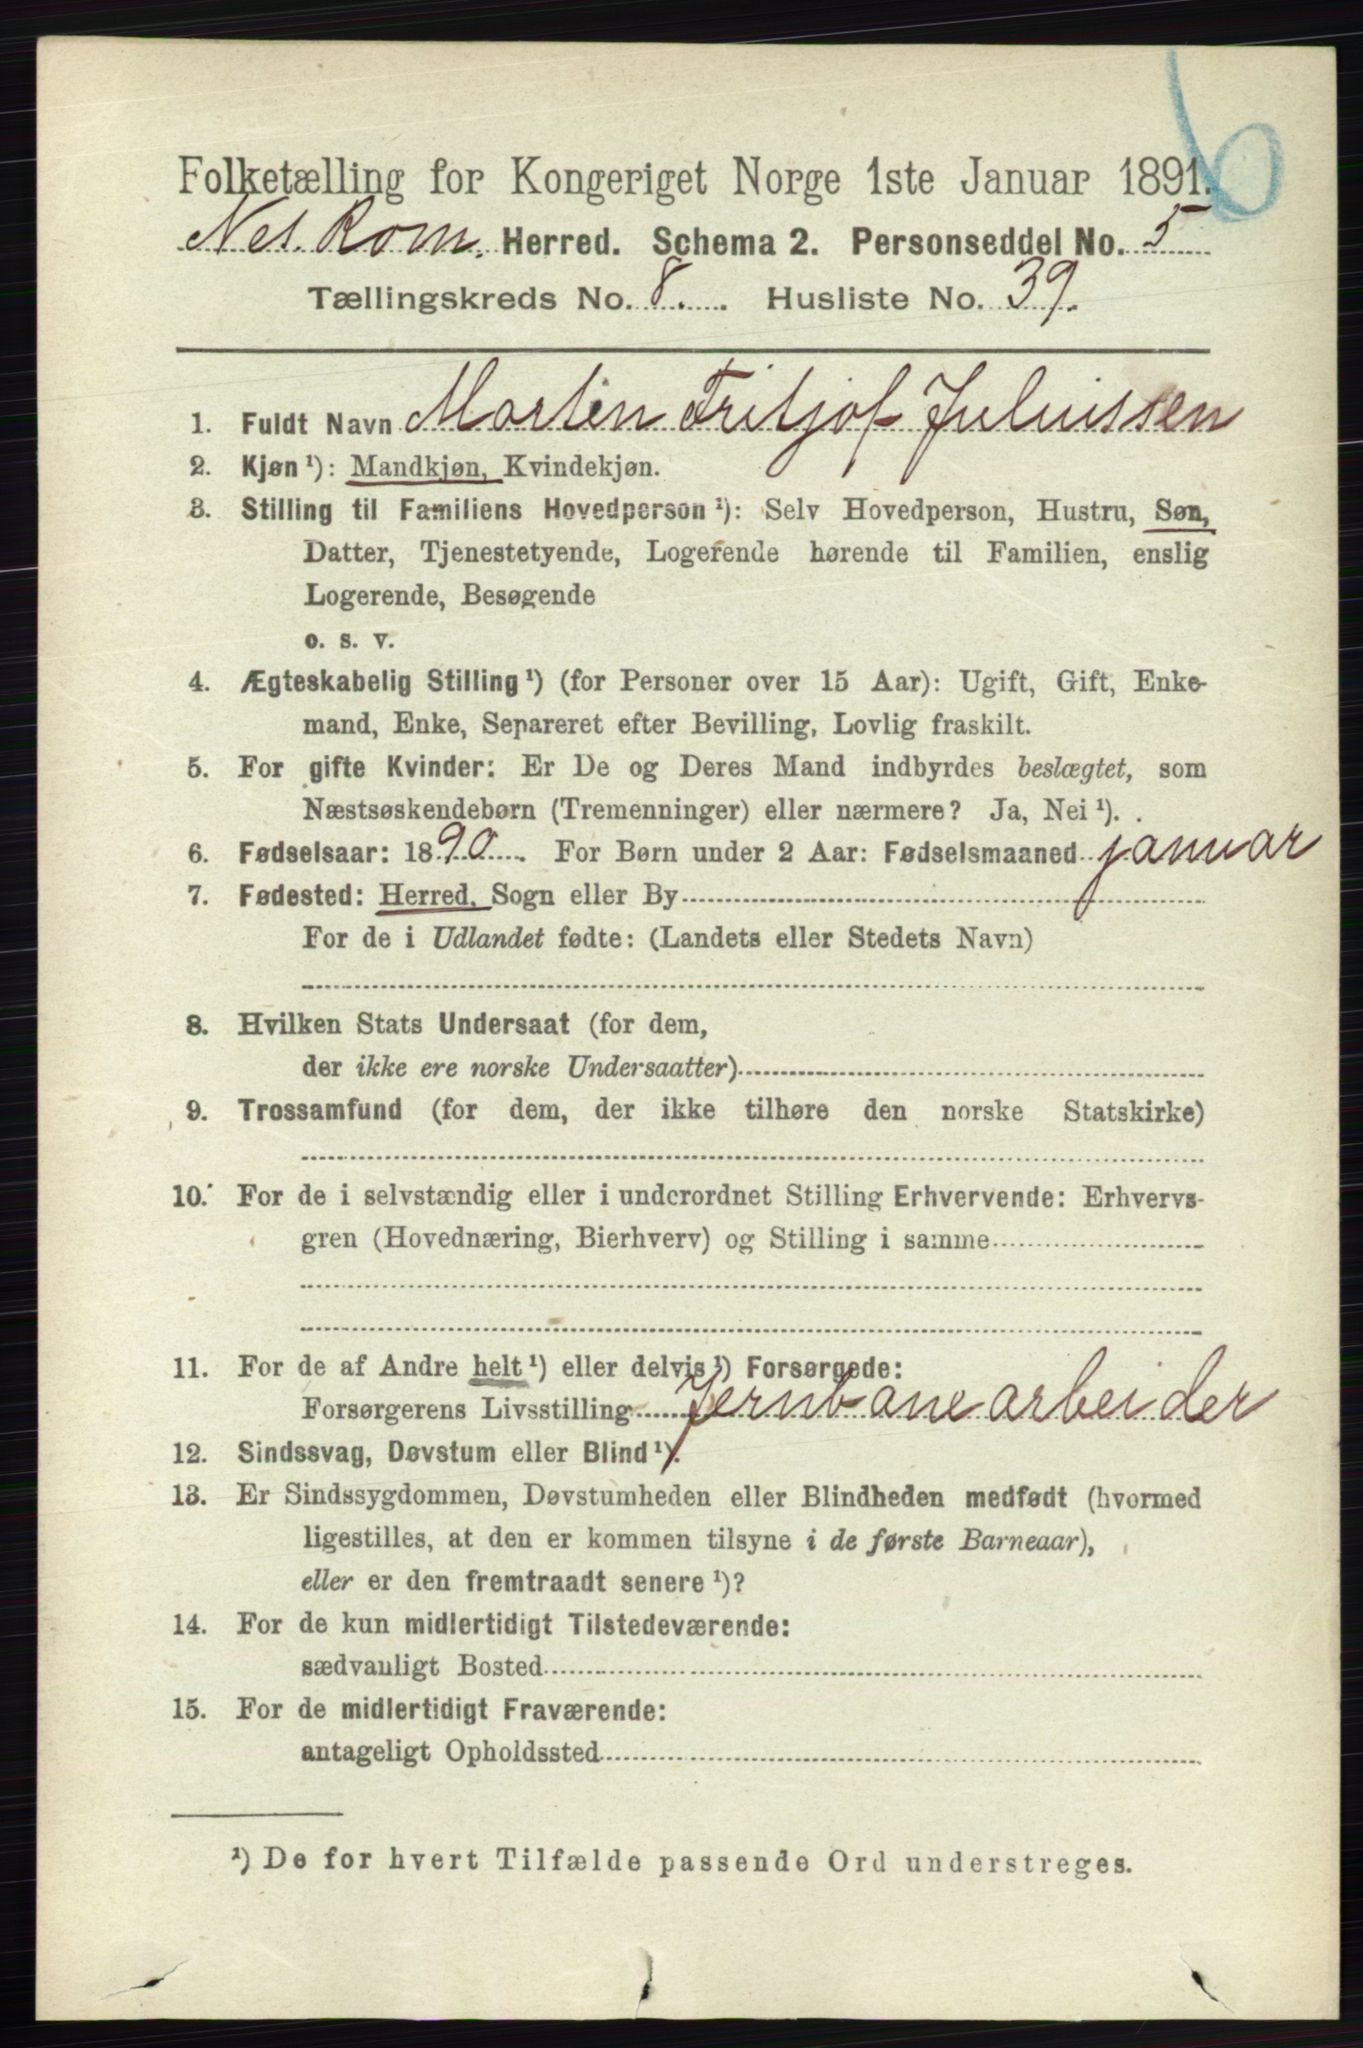 6
Folketælling for Kongeriget Norge 1ste Januar 1891.
Nes. Rom. Herred. Schema 2. Personseddel No. 5
Tællingskreds No. 8. Husliste No. 39.
1. Fuldt Navn Morten Fritjof Juluissen
2. Kjøn ¹): Mandkjøn, Kvindekjøn.
3. Stilling til Familiens Hovedperson ¹): Selv Hovedperson, Hustru, Søn,
Datter, Tjenestetyende, Logerende hørende til Familien, enslig
Logerende, Besøgende
o. s. v.
4. Ægteskabelig Stilling ¹) (for Personer over 15 Aar): Ugift, Gift, Enke-
mand, Enke, Separeret efter Bevilling, Lovlig fraskilt.
5. For gifte Kvinder: Er De og Deres Mand indbyrdes beslægtet, som
Næstsøskendebørn (Tremenninger) eller nærmere? Ja, Nei ¹).
6. Fødselsaar: 1890. For Børn under 2 Aar: Fødselsmaaned januar
7. Fødested: Herred, Sogn eller By
For de i Udlandet fødte: (Landets eller Stedets Navn)
8. Hvilken Stats Undersaat (for dem,
der ikke ere norske Undersaatter)
9. Trossamfund (for dem, der ikke tilhøre den norske Statskirke)
10. For de i selvstændig eller i underordnet Stilling Erhvervende: Erhvervs-
gren (Hovednæring, Bierhverv) og Stilling i samme
11. For de af Andre helt ¹) eller delvis ¹) Forsørgede:
Forsørgerens Livsstilling Jernbanearbeider
12. Sindssvag, Døvstum eller Blind ¹).
13. Er Sindssygdommen, Døvstumheden eller Blindheden medfødt (hvormed
ligestilles, at den er kommen tilsyne i de første Barneaar),
eller er den fremtraadt senere ¹)?
14. For de kun midlertidigt Tilstedeværende:
sædvanligt Bosted
15. For de midlertidigt Fraværende:
antageligt Opholdssted
¹) De for hvert Tilfælde passende Ord understreges.